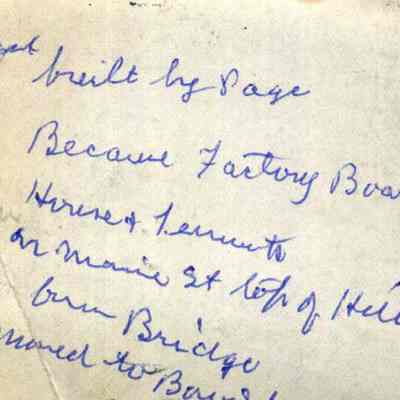 built by Page
Became Factory Boa
House & Tenments
on Maine St top of Hill
Bridge
moved to